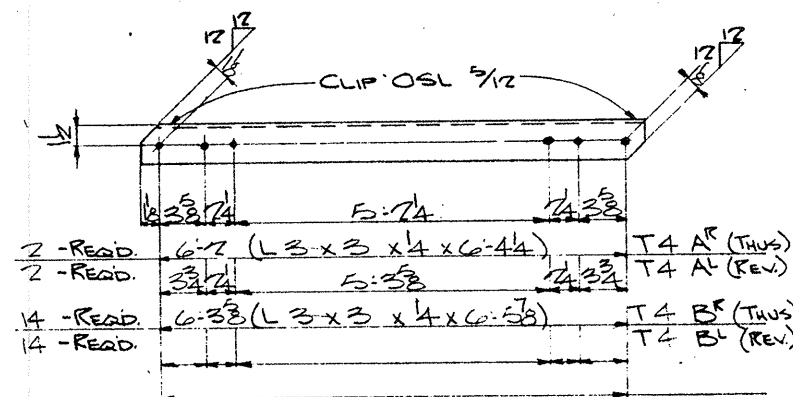 12 12
1 1/8
12 12
1 1/8
CLIP OSL 5/12
1 1/2
1 1/8 3 5/8 2 1/4 5-2 1/4 2 1/4 3 5/8
2 -REQD. 6-2 (L 3 x 3 x 1/4 x 6-4 1/4) T4 A^R (THUS)
2 -REQD. T4 A^L (REV.)
3 3/4 2 1/4 5-3 5/8 2 1/4 3 3/4
14 -REQD. 6-3 5/8 (L 3 x 3 x 1/4 x 6-5 7/8) T4 B^R (THUS)
14 -REQD. T4 B^L (REV.)